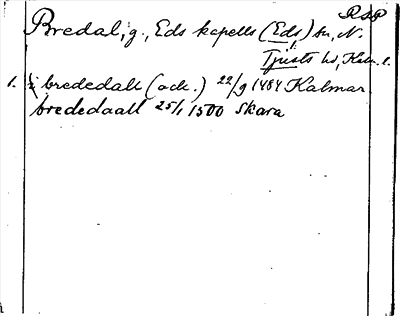 RSP
Bredal, g., Eds kapells (Eds) sn, N.
Tjusts hd, Kalm. l.
1. i brededall (ack.) 22/9 1484 Kalmar
brededaall 25/1 1500 Skara